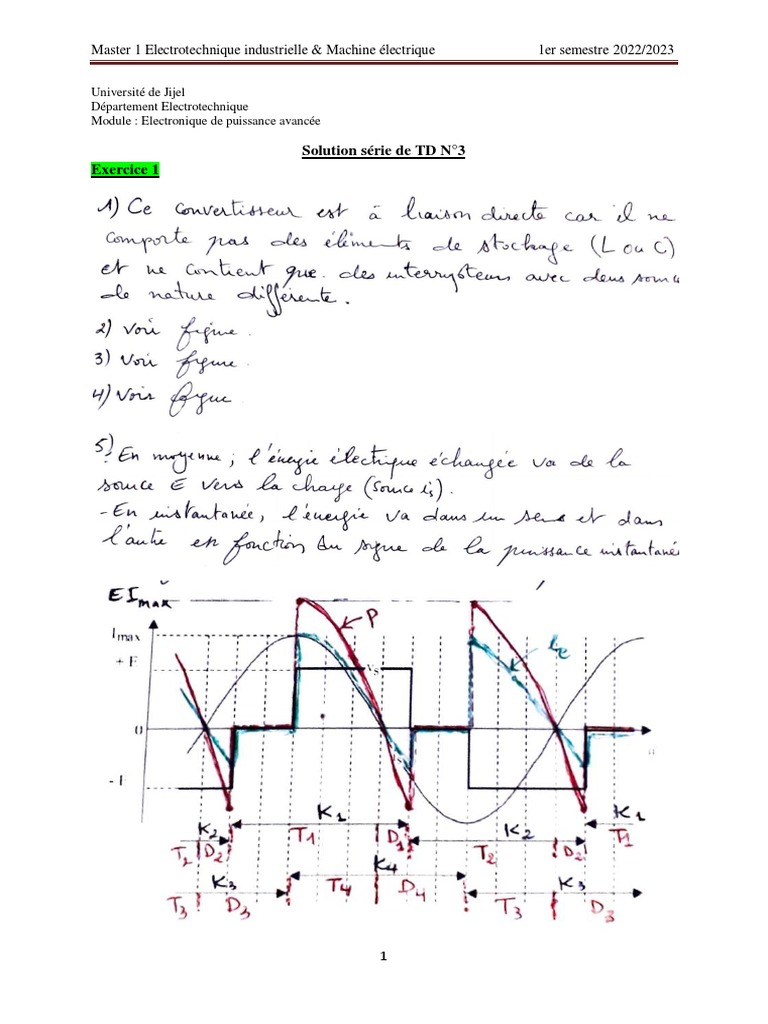 Master 1 Electrotechnique industrielle & Machine électrique 1er semestre 2022/2023
Université de Jijel
Département Electrotechnique
Module : Electronique de puissance avancée
Solution série de TD N°3
Exercice 1
1) Ce convertisseur est à liaison directe car il ne
comporte pas des éléments de stockage (L ou C)
et ne contient que des interrupteurs avec deux sour
de nature différente.
2) Voir figure.
3) Voir figure.
4) Voir figure
5) - En moyenne ; l'énergie électrique échangée va de la
source E vers la charge (source is).
- En instantanée, l'énergie va dans un sens et dans
l'autre en fonction du signe de la puissance instantanée
E Imax
Imax
P
ie
+ E
vs
0
- E
K1 K1
K2 T1 D1 K2 T1
T2 D2 T2 D2
K4
K3 T4 D4 K3
T3 D3 T3 D3
1